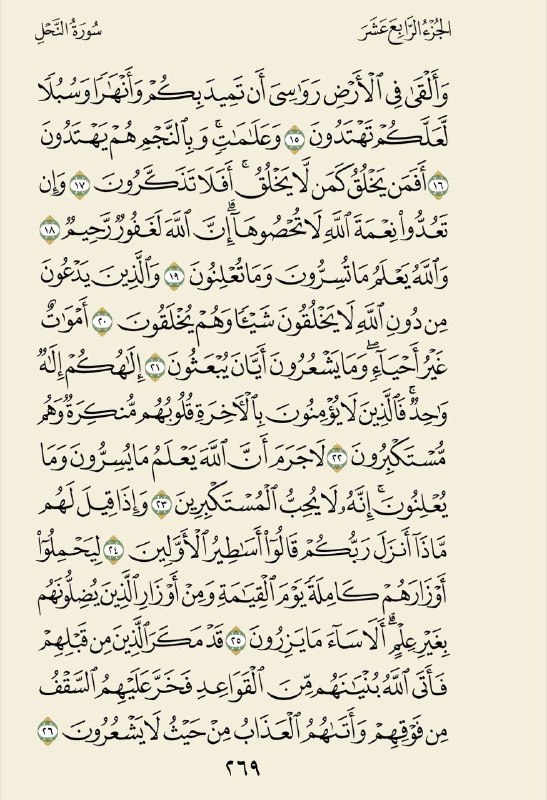 الجُزْءُ الرَّابِعَ عَشَرَ
سُورَةُ النَّحْلِ
وَأَلْقَىٰ فِي ٱلْأَرْضِ رَوَٰسِيَ أَن تَمِيدَ بِكُمْ وَأَنْهَٰرًا وَسُبُلًا
لَّعَلَّكُمْ تَهْتَدُونَ ١٥ وَعَلَٰمَٰتٍۚ وَبِٱلنَّجْمِ هُمْ يَهْتَدُونَ
١٦ أَفَمَن يَخْلُقُ كَمَن لَّا يَخْلُقُۚ أَفَلَا تَذَكَّرُونَ ١٧ وَإِن
تَعُدُّوا۟ نِعْمَةَ ٱللَّهِ لَا تُحْصُوهَآۗ إِنَّ ٱللَّهَ لَغَفُورٌ رَّحِيمٌ ١٨
وَٱللَّهُ يَعْلَمُ مَا تُسِرُّونَ وَمَا تُعْلِنُونَ ١٩ وَٱلَّذِينَ يَدْعُونَ
مِن دُونِ ٱللَّهِ لَا يَخْلُقُونَ شَيْـًٔا وَهُمْ يُخْلَقُونَ ٢٠ أَمْوَٰتٌ
غَيْرُ أَحْيَآءٍۖ وَمَا يَشْعُرُونَ أَيَّانَ يُبْعَثُونَ ٢١ إِلَٰهُكُمْ إِلَٰهٌ
وَٰحِدٌۚ فَٱلَّذِينَ لَا يُؤْمِنُونَ بِٱلْـَٔاخِرَةِ قُلُوبُهُم مُّنكِرَةٌ وَهُم
مُّسْتَكْبِرُونَ ٢٢ لَا جَرَمَ أَنَّ ٱللَّهَ يَعْلَمُ مَا يُسِرُّونَ وَمَا
يُعْلِنُونَۚ إِنَّهُۥ لَا يُحِبُّ ٱلْمُسْتَكْبِرِينَ ٢٣ وَإِذَا قِيلَ لَهُم
مَّاذَآ أَنزَلَ رَبُّكُمْ قَالُوٓا۟ أَسَٰطِيرُ ٱلْأَوَّلِينَ ٢٤ لِيَحْمِلُوٓا۟
أَوْزَارَهُمْ كَامِلَةً يَوْمَ ٱلْقِيَٰمَةِ وَمِنْ أَوْزَارِ ٱلَّذِينَ يُضِلُّونَهُم
بِغَيْرِ عِلْمٍۗ أَلَا سَآءَ مَا يَزِرُونَ ٢٥ قَدْ مَكَرَ ٱلَّذِينَ مِن قَبْلِهِمْ
فَأَتَى ٱللَّهُ بُنْيَٰنَهُم مِّنَ ٱلْقَوَاعِدِ فَخَرَّ عَلَيْهِمُ ٱلسَّقْفُ
مِن فَوْقِهِمْ وَأَتَىٰهُمُ ٱلْعَذَابُ مِنْ حَيْثُ لَا يَشْعُرُونَ ٢٦
٢٦٩